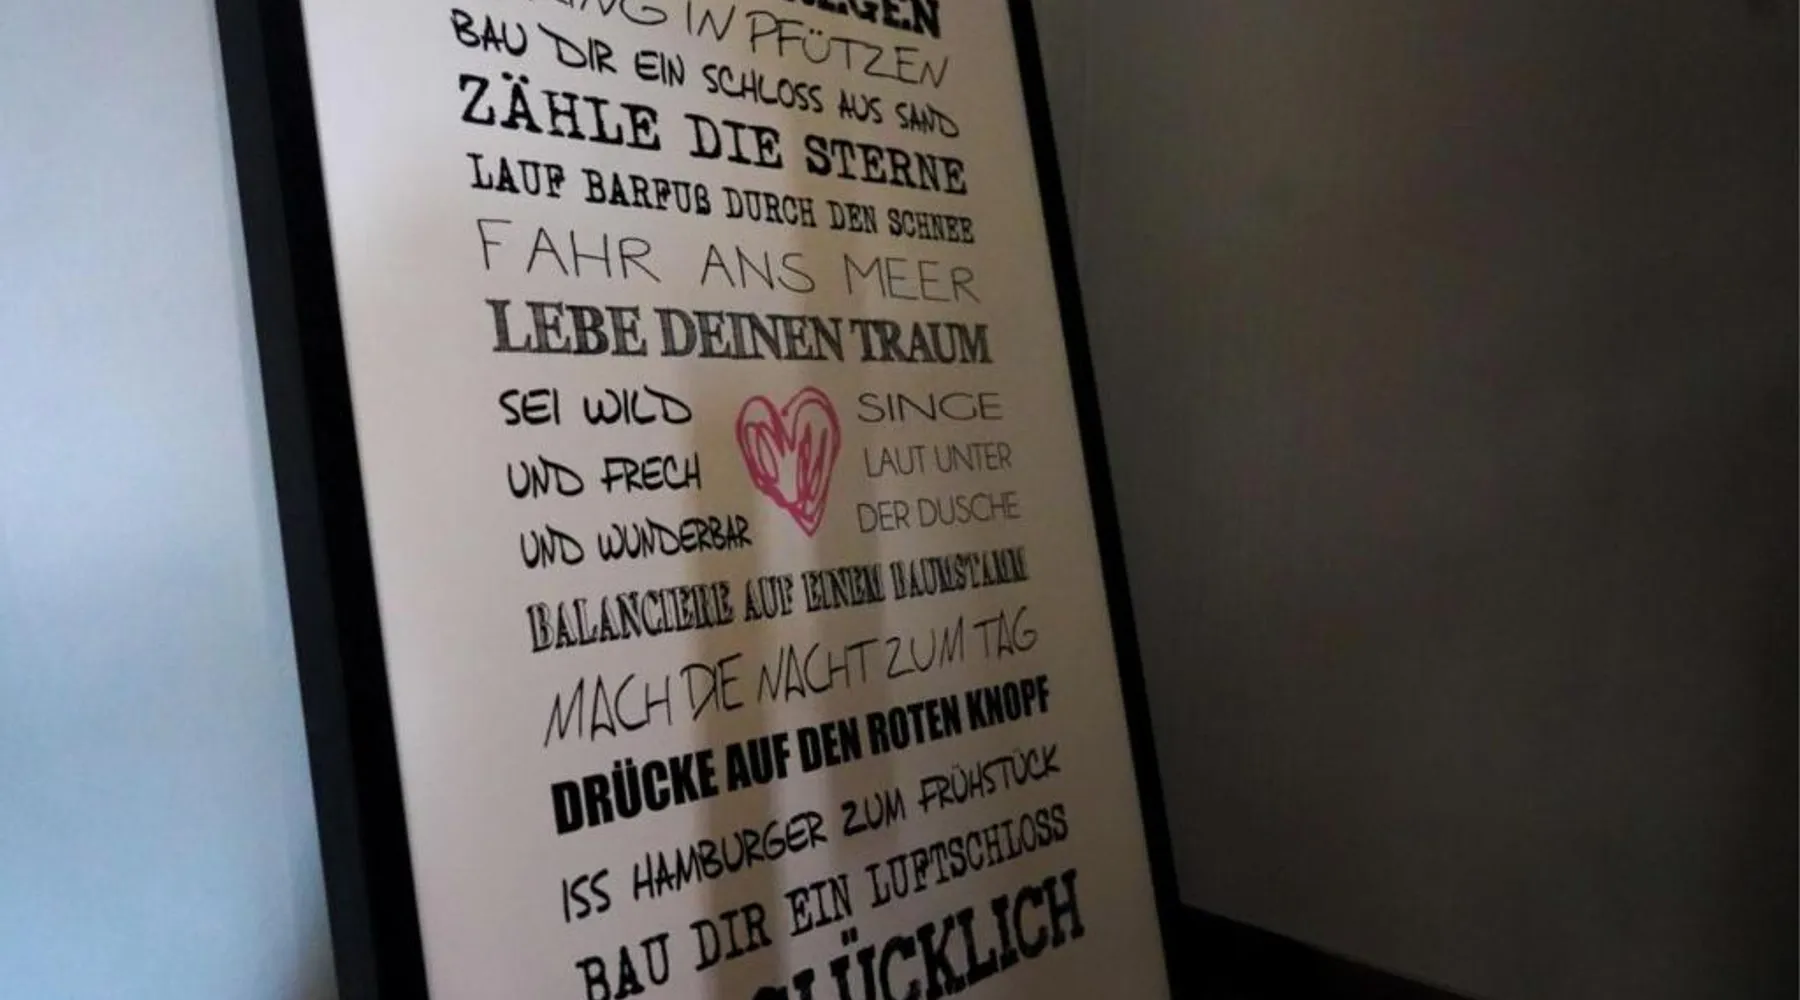 IN PFÜTZEN
BAU DIR EIN SCHLOSS AUS SAND
ZÄHLE DIE STERNE
LAUF BARFUß DURCH DEN SCHNEE
FAHR ANS MEER
LEBE DEINEN TRAUM
SEI WILD
UND FRECH
UND WUNDERBAR
SINGE
LAUT UNTER
DER DUSCHE
BALANCIERE AUF EINEM BAUMSTAMM
MACH DIE NACHT ZUM TAG
DRÜCKE AUF DEN ROTEN KNOPF
ISS HAMBURGER ZUM FRÜHSTÜCK
BAU DIR EIN LUFTSCHLOSS
GLÜCKLICH